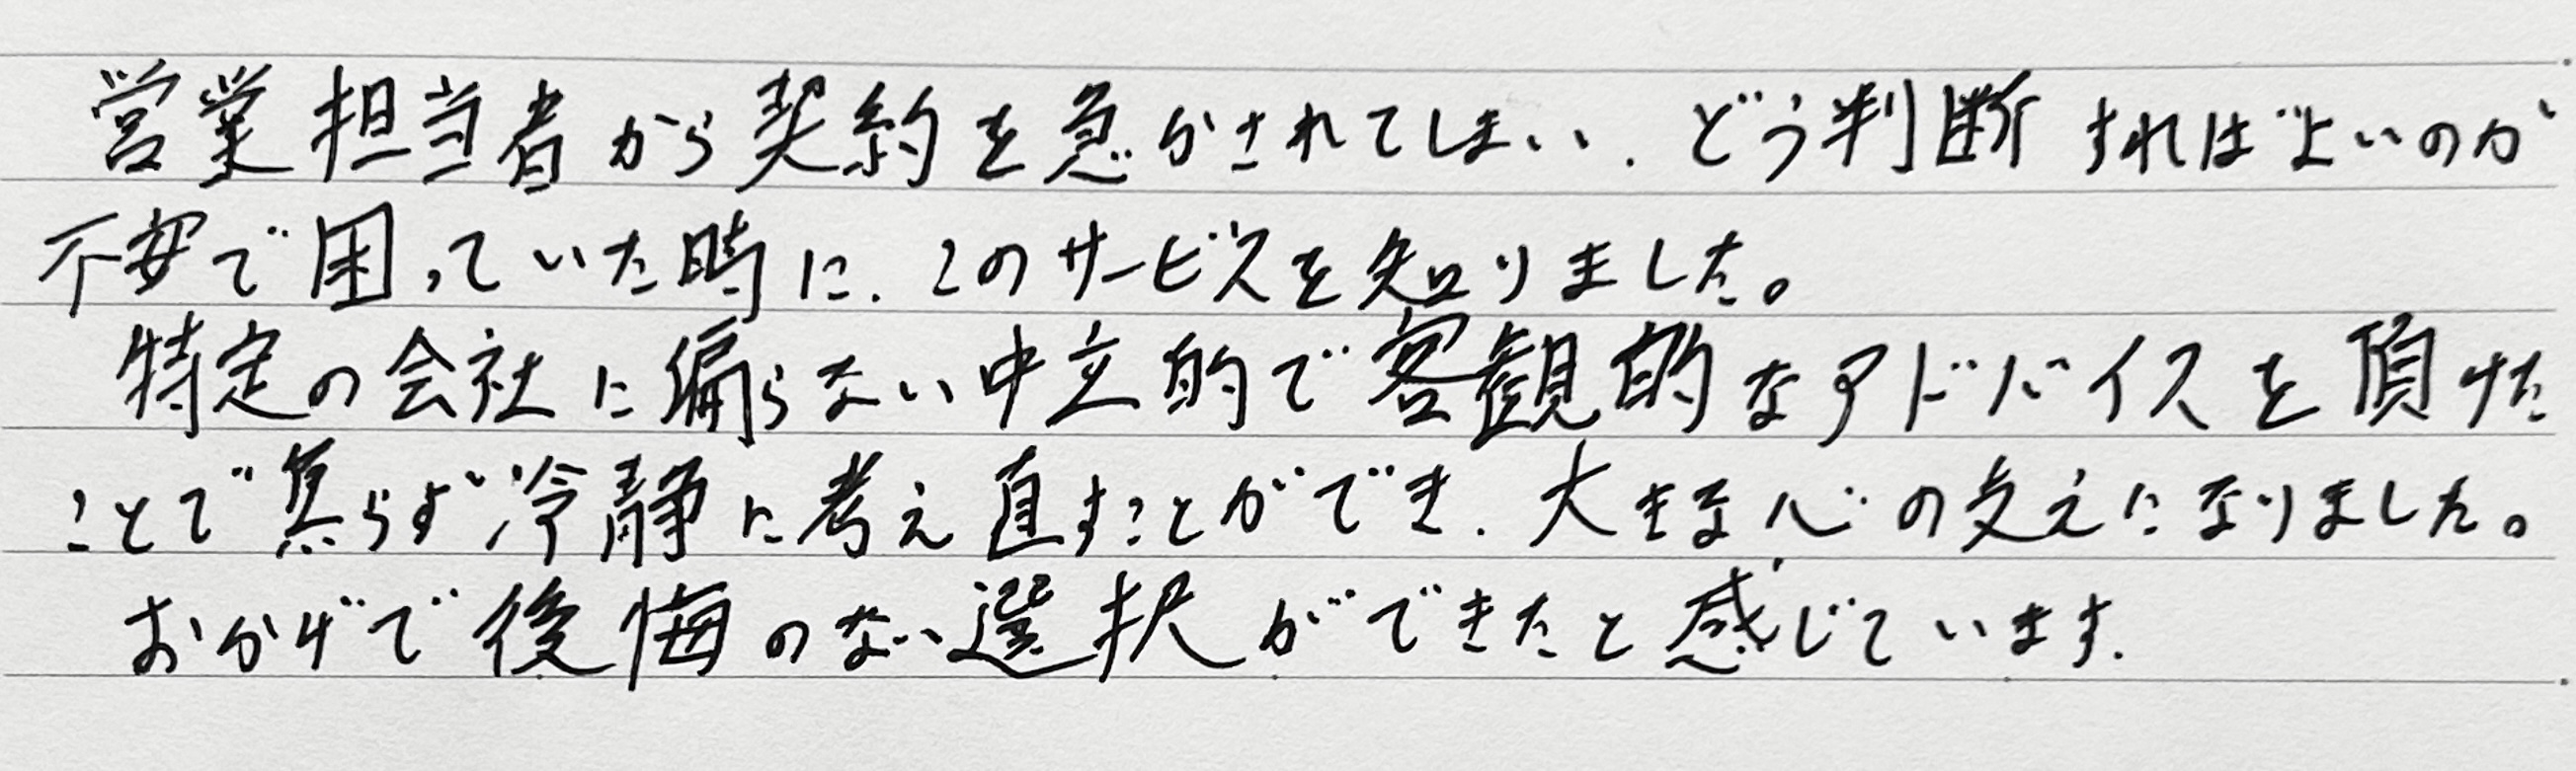 営業担当者から契約を急かされてしまい、どう判断すればよいのか
不安で困っていた時に、このサービスを知りました。
特定の会社に偏らない中立的で客観的なアドバイスを頂けた
ことで焦らず冷静に考え直すことができ、大きな心の支えになりました。
おかげで後悔のない選択ができたと感じています。